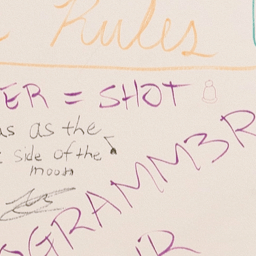 Rules
ER = SHOT
as as the
side of the
moon
OGRAMM3R